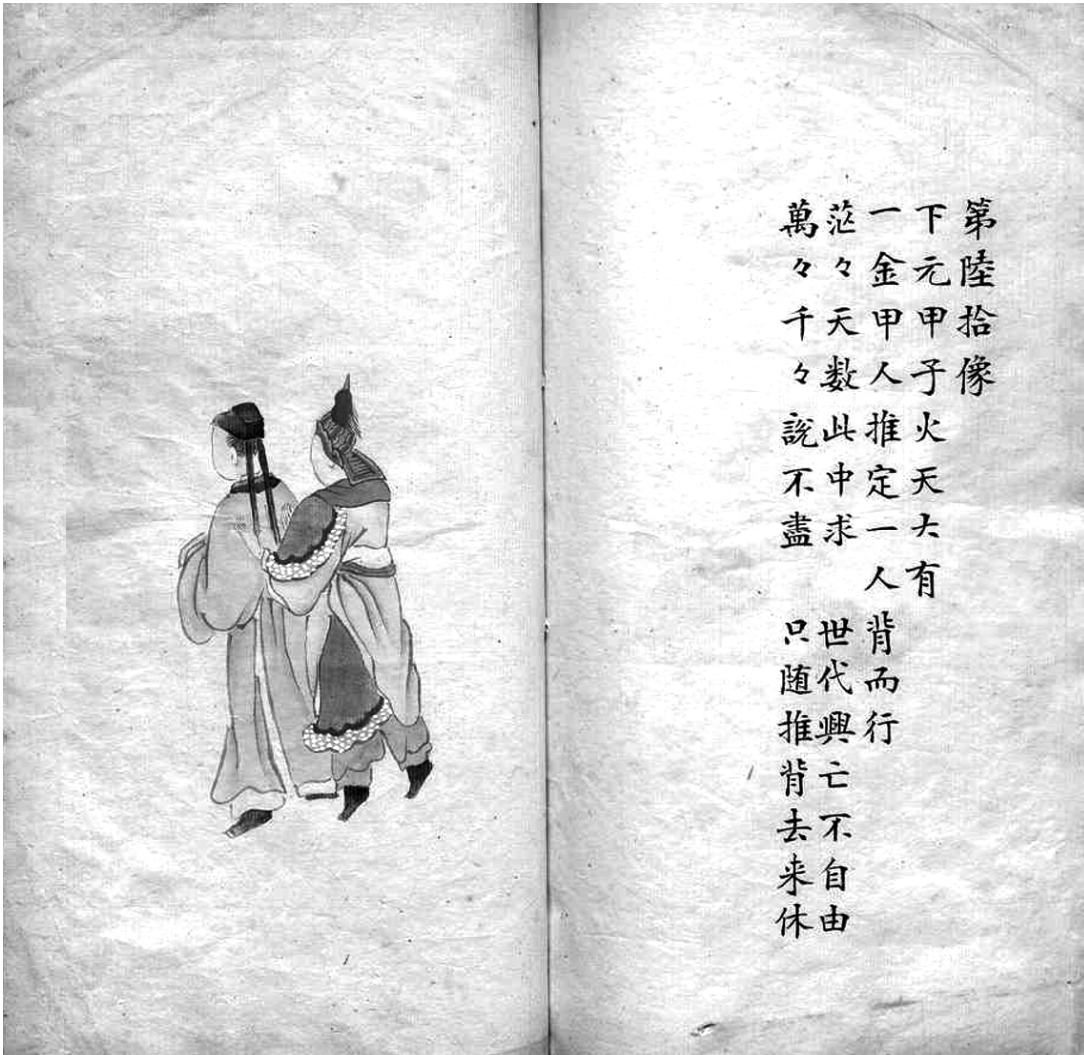 第陸拾像
下元甲子火天大有
一金甲人推定一人背而行
茫々天数此中求 世代興亡不自由
萬々千々說不盡 只随推背去来休